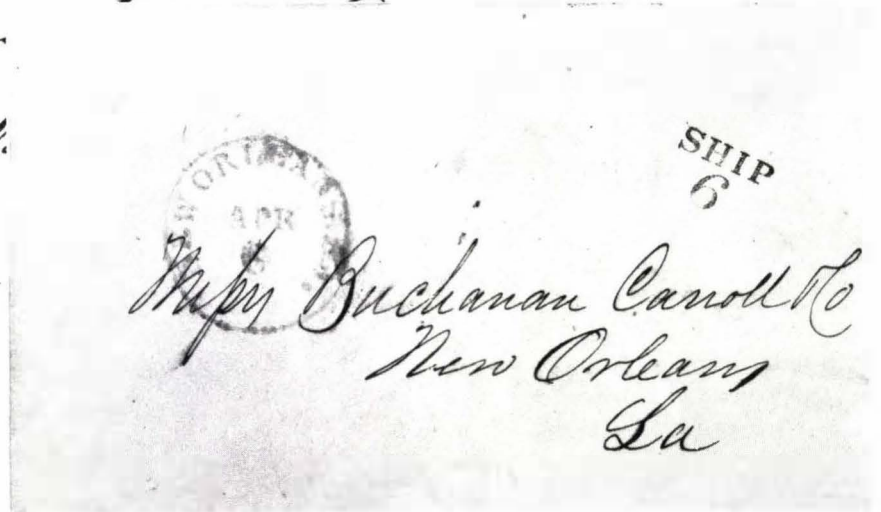 NEW ORLEANS
APR
SHIP
6
Messrs Buchanan Carroll & Co
New Orleans
La